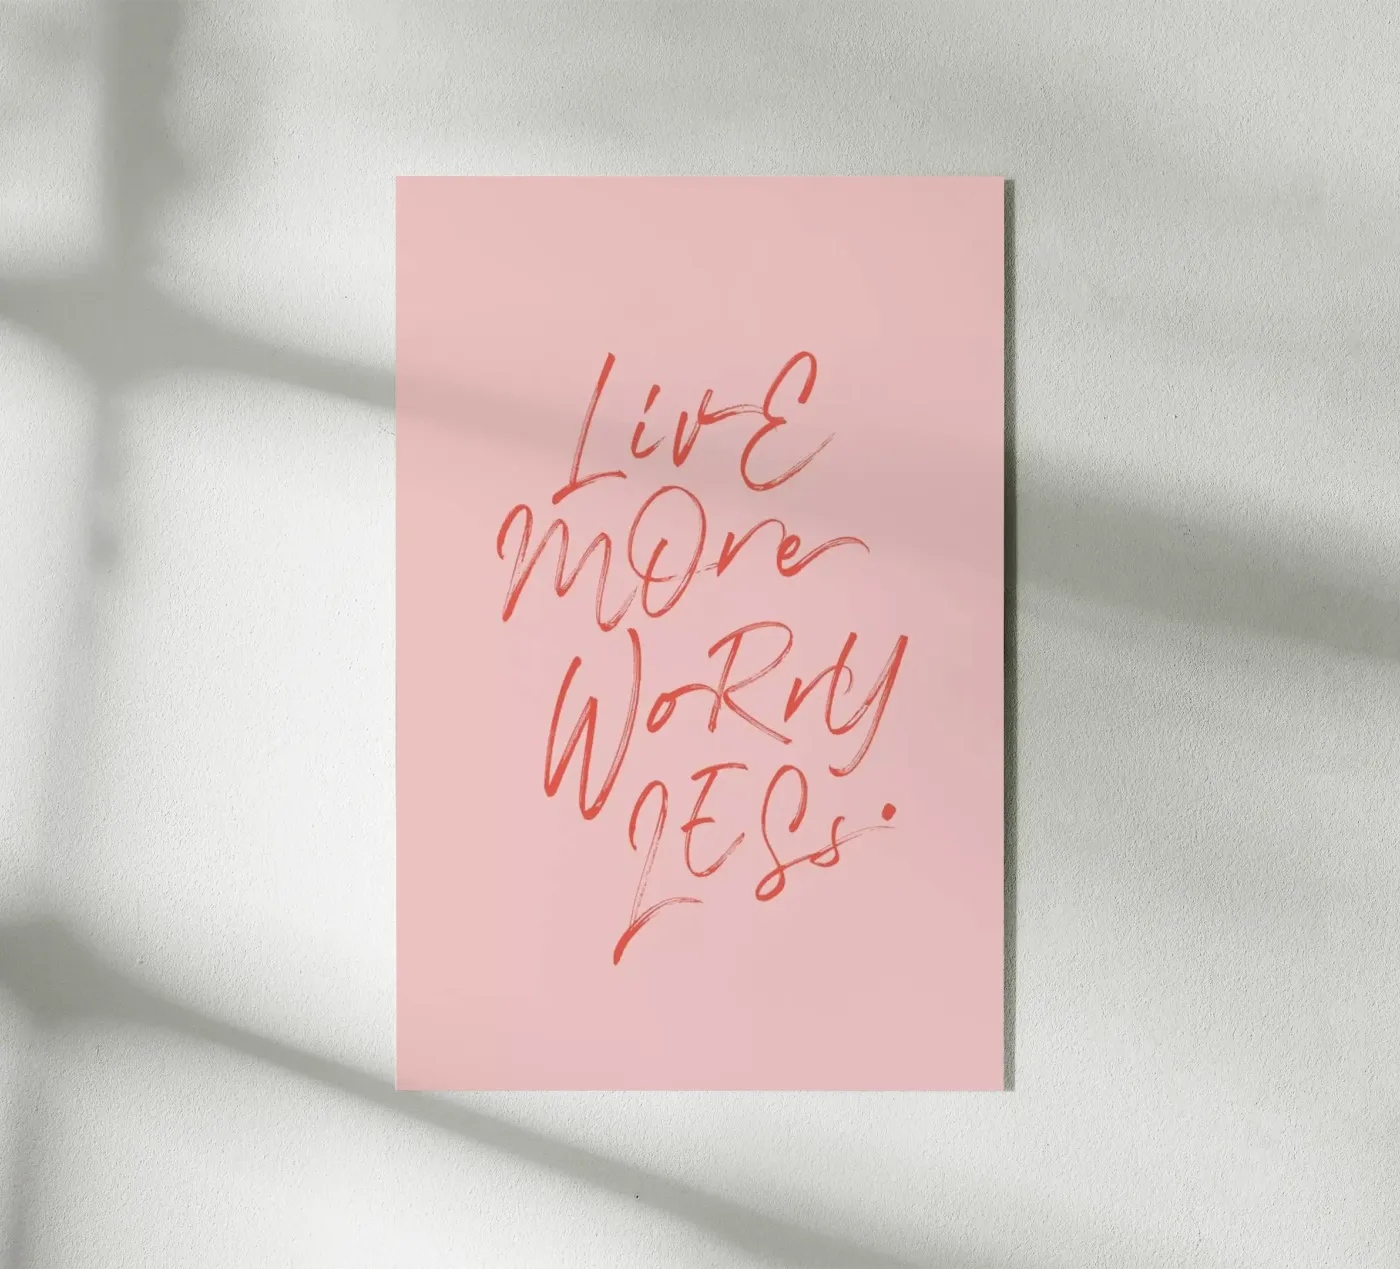 LivE
MOre
WoRrY
LESs.